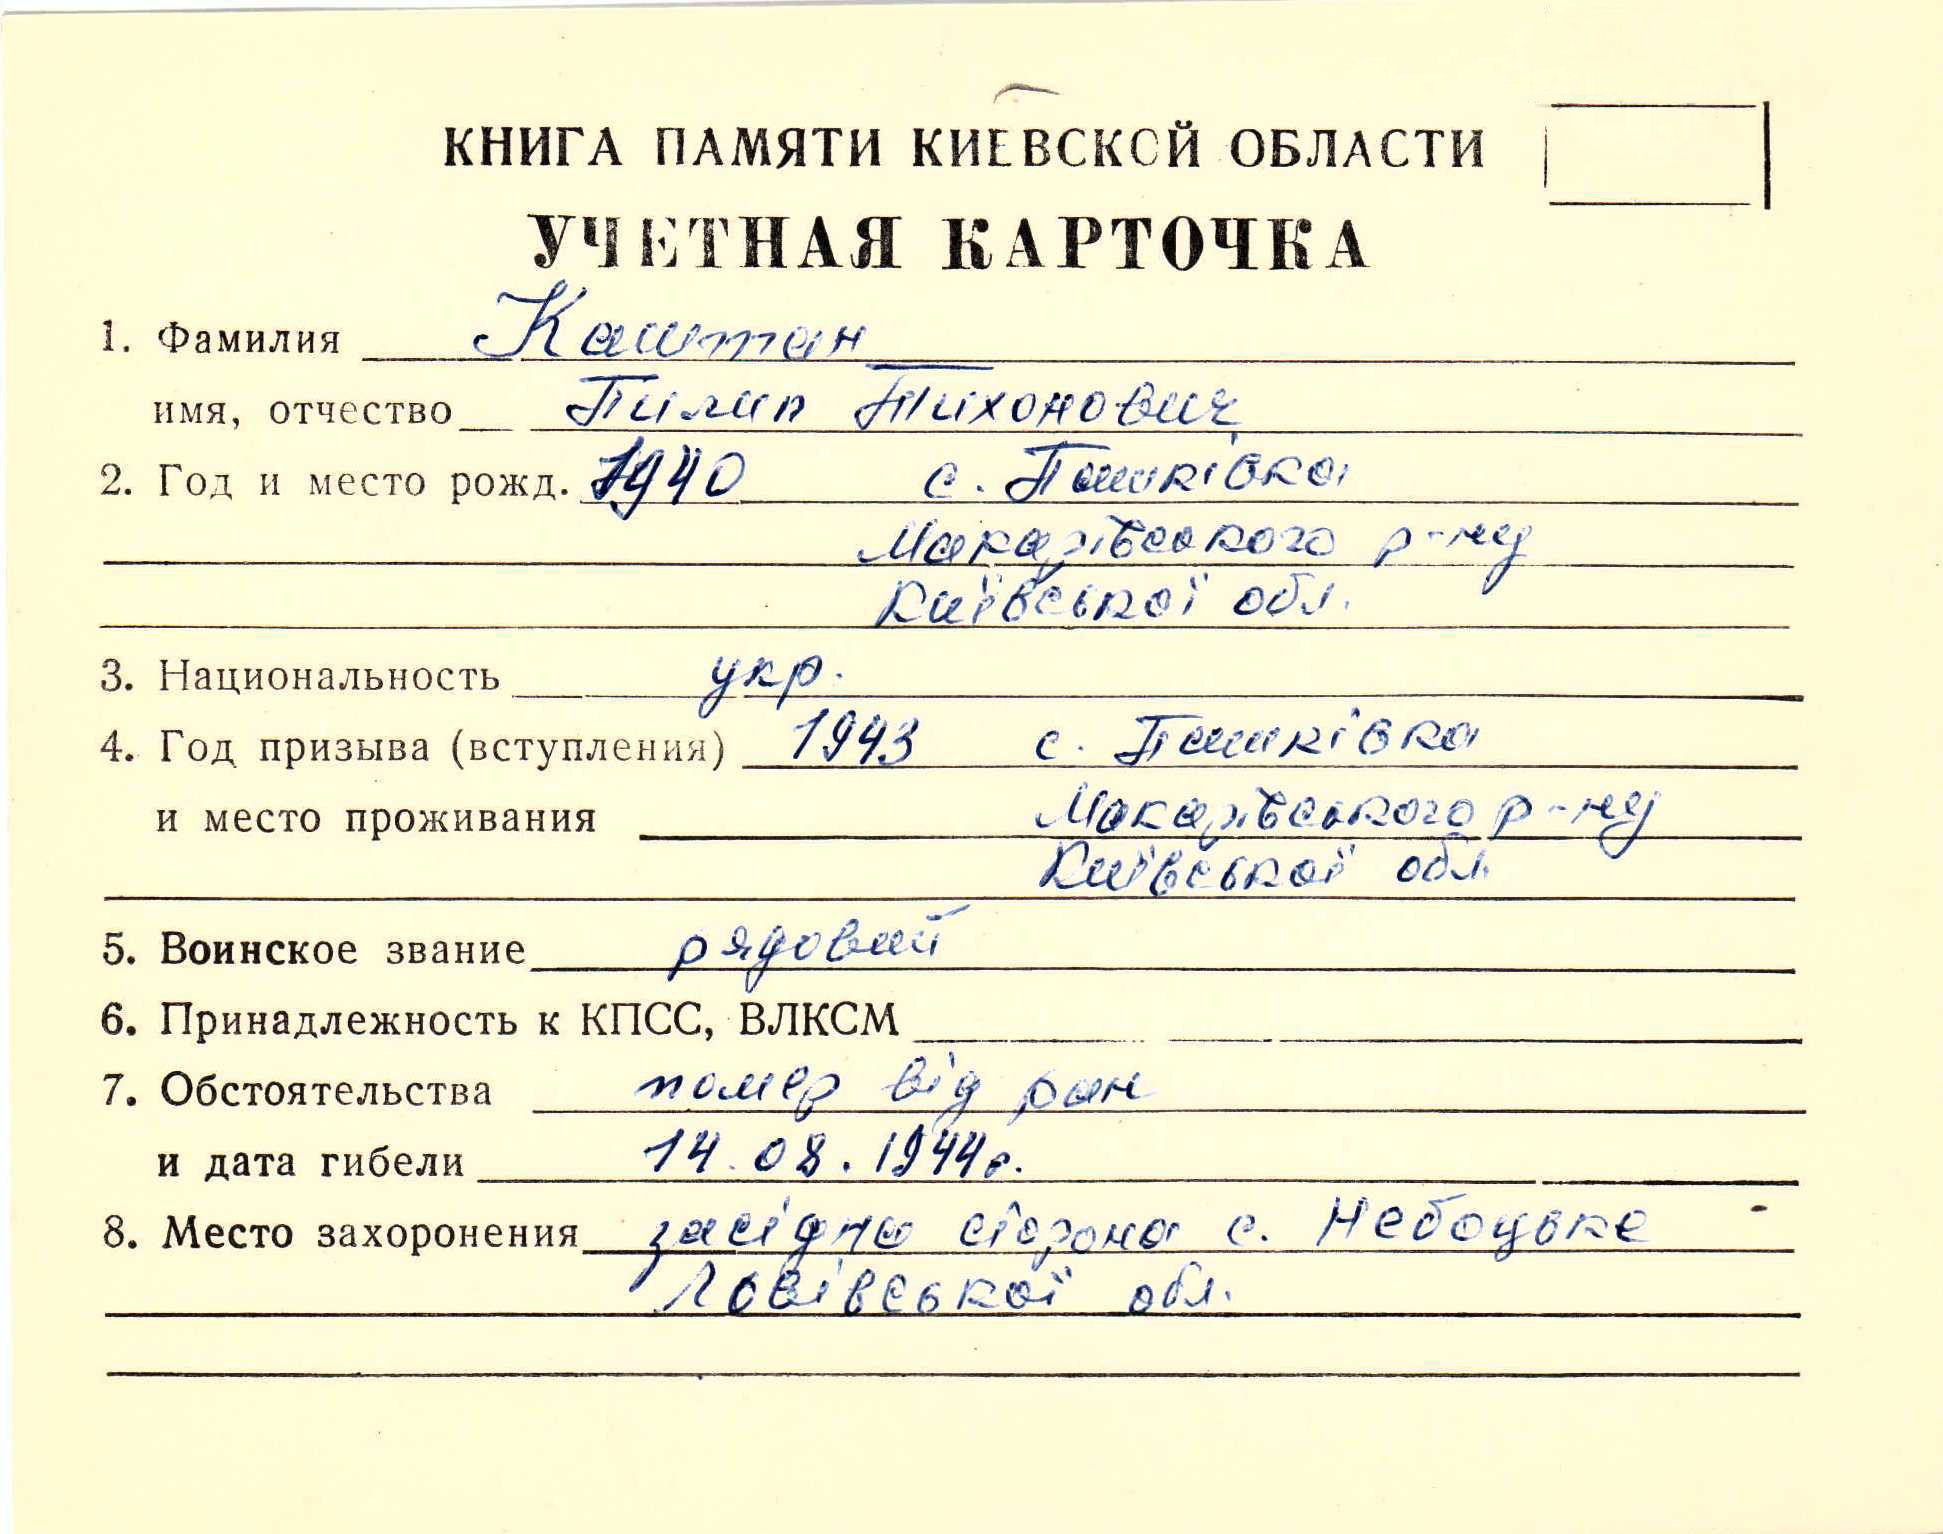 КНИГА ПАМЯТИ КИЕВСКОЙ ОБЛАСТИ
УЧЕТНАЯ КАРТОЧКА
1. Фамилия Каштан
имя, отчество Пилип Тихонович
2. Год и место рожд. 1940 с. Пашківка
Макарівського р-ну
Київської обл.
3. Национальность укр.
4. Год призыва (вступления) 1943 с. Пашківка
и место проживания Макарівського р-ну
Київської обл.
5. Воинское звание рядовий
6. Принадлежность к КПССС, ВЛКСМ
7. Обстоятельства помер від ран
и дата гибели 14.08.1944г.
8. Место захоронения сторона с.
Львівської обл.